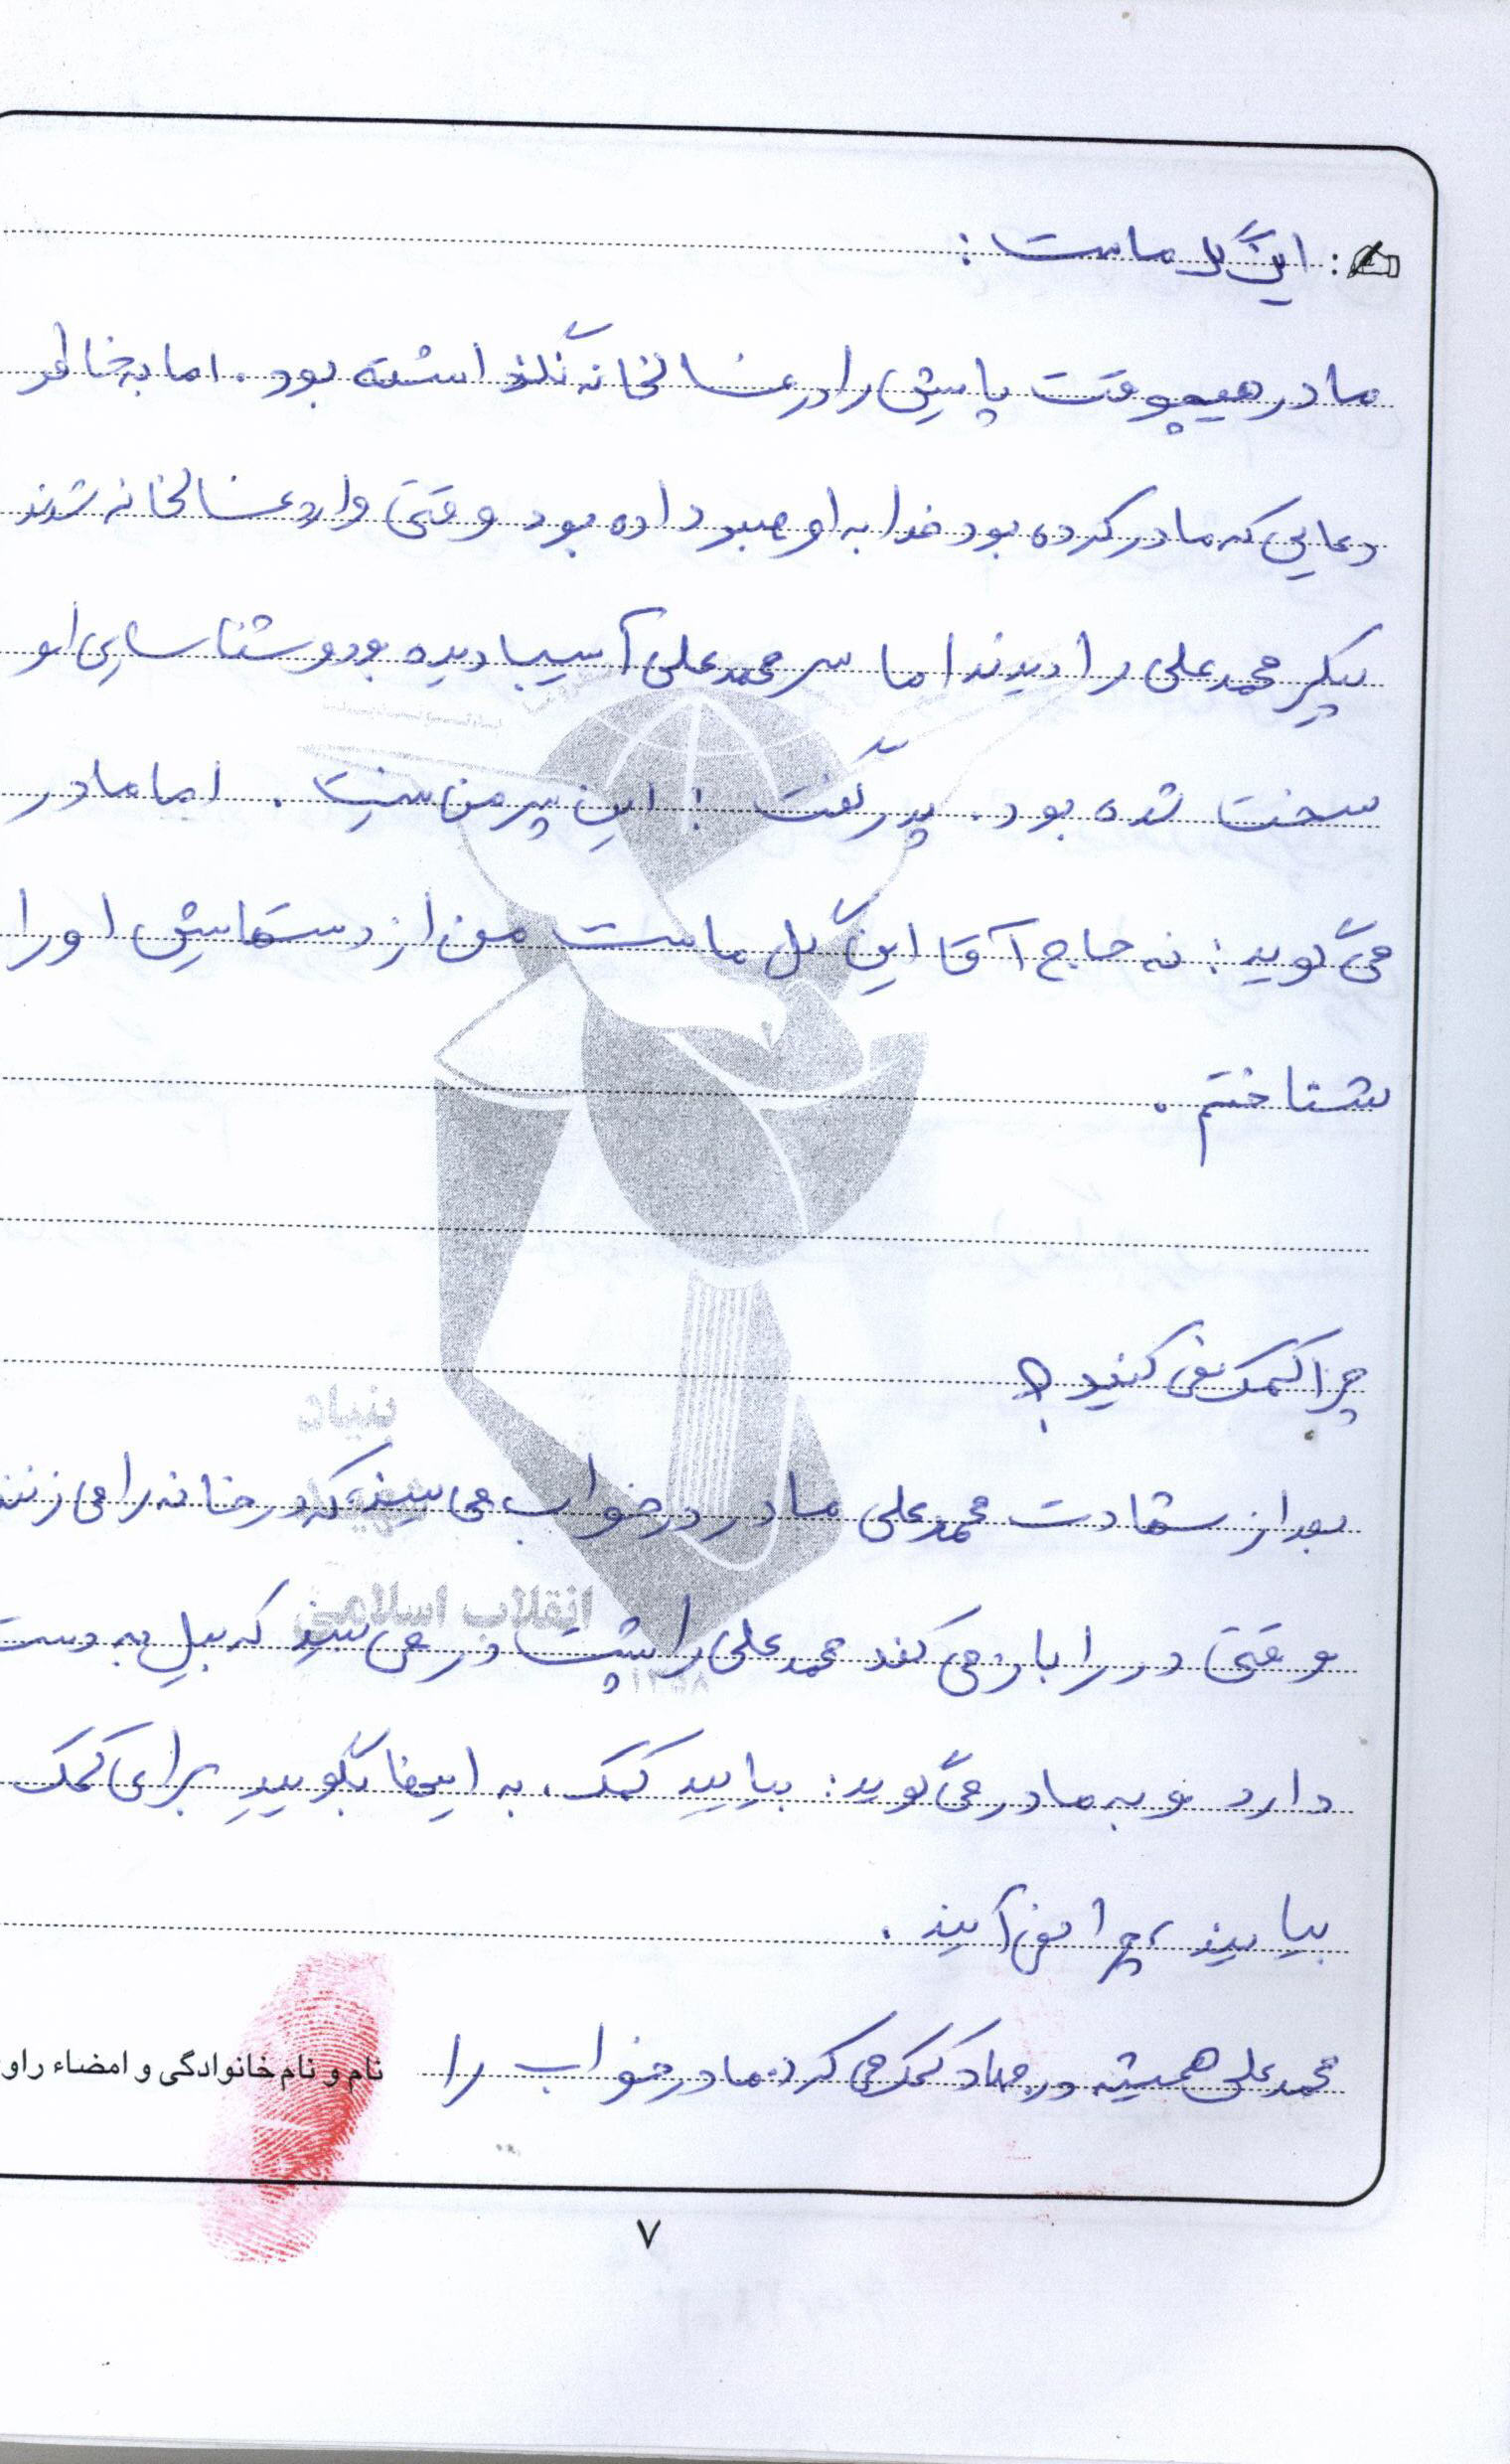 : این گل ماست :
مادر هیچوقت پایش را در غسالخانه نگذاشته بود . اما به خاطر
دعایی که مادر کرده بود خدا به او صبر داده بود وقتی وارد غسالخانه شدند
پیکر محمدعلی را دیدند اما سر محمدعلی آسیب دیده بود و شناسایی او
سخت شده بود . پدر گفت : این پسر من نیست . اما مادر
می گوید : نه حاج آقا این گل ماست من از دستهایش او را
شناختم .
چرا کمک نمی کنید ؟
بعد از شهادت محمدعلی مادر در خواب می بیند که در خانه را می زنند
وقتی در را باز می کند محمدعلی را پشت در می بیند که بیل به دست
دارد و به مادر می گوید : بیایید کمک ، به اینها بگویید برای کمک
بیایند ، چرا نمی آیند .
محمدعلی همیشه در جهاد کمک می کرد . مادر خواب را
نام و نام خانوادگی و امضاء راو
۷
بنیاد
انقلاب اسلامی
۱۳۵۸